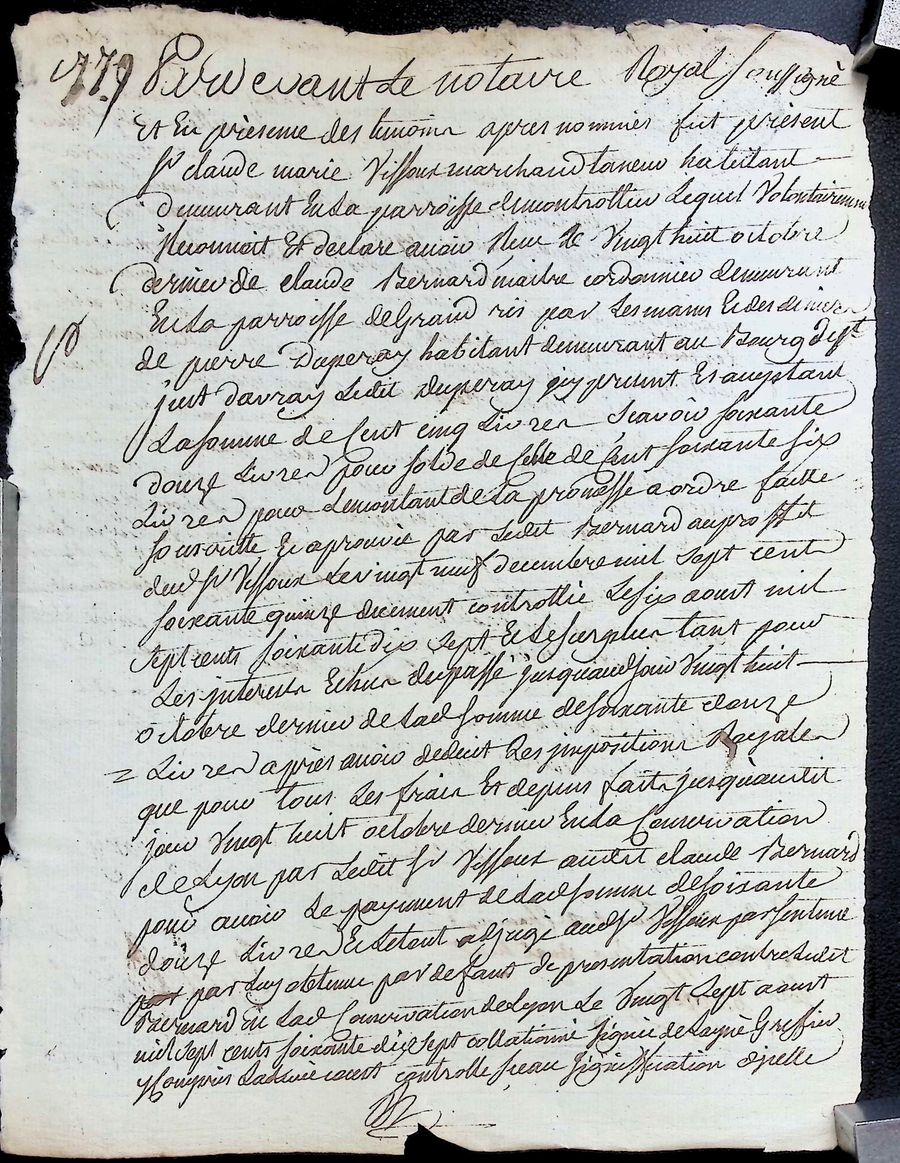 1779 Pardevant Le notaire Royal Soussigné
Et En présence des temoins apres nommés fut présent
Sr claude marie Vissoux marchand taneur habitant
demeurant En La parroisse de montrottier Lequel Volontairement
Reconnoit Et declare avoir Reçu Le Vingt huit octobre
dernier de claude Bernard maitre cordonnier demeurant
En La parroisse de Grand ris par Les mains Et des deniers
de pierre Duperay habitant demeurant au Bourg de St
just davray Ledit Duperay icy present Et acceptant
La somme de Cent cinq Livres Scavoir soixante
douze Livres pour solde de Celle de Cent soixante six
Livres pour Le montant de La promesse a ordre faitte
souscritte Et aprouvée par Ledit Bernard au proffit
dud Sr Vissoux Le vingt neuf decembre mil Sept cent
soixante quinze duement controllée Le six aoust mil
Sept cents soixante dix Sept Et Le surplus tant pour
Les interets Echus du passé jusquaud jour Vingt huit
octobre dernier de Lad somme de soixante douze
Livres apres avoir deduit Les impositions Royales
que pour tous Les frais Et depens faits jusquaudit
jour Vingt huit octobre dernier En La Conservation
de Lyon par Ledit Sr Vissoux audit claude Bernard
pour avoir Le payement de Lad somme de soixante
douze Livres Et Le tout adjugé aud Sr Vissoux par sentence
par Luy obtenue par defaut de presentation contre Ledit
Bernard En Lad Conservation de Lyon Le Vingt Sept aoust
mil Sept cents soixante dix Sept collationné Signée de Greffier
y compris controlle sceau Signiffication dicelle